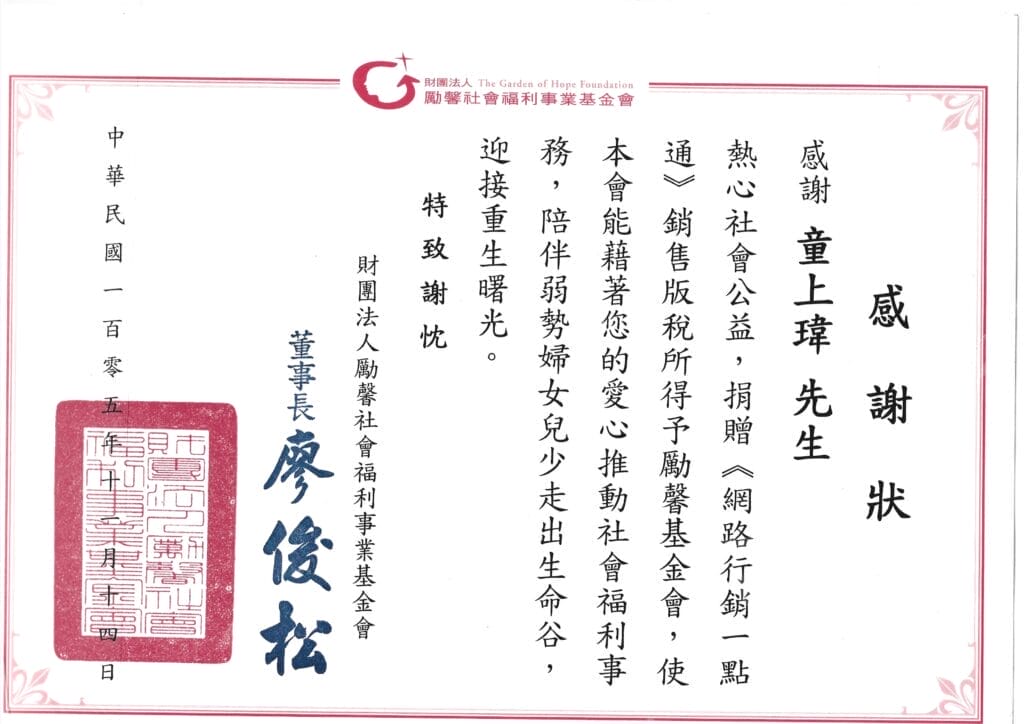 財團法人 The Garden of Hope Foundation
勵馨社會福利事業基金會
感謝狀
感謝 童上瑋 先生
熱心社會公益，捐贈《網路行銷一點
通》銷售版稅所得予勵馨基金會，使
本會能藉著您的愛心推動社會福利事
務，陪伴弱勢婦女兒少走出生命谷，
迎接重生曙光。
特致謝忱
財團法人勵馨社會福利事業基金會
董事長 廖俊松
中華民國一百零五年十二月十四日
財團法人勵馨社會
福利事業基金會